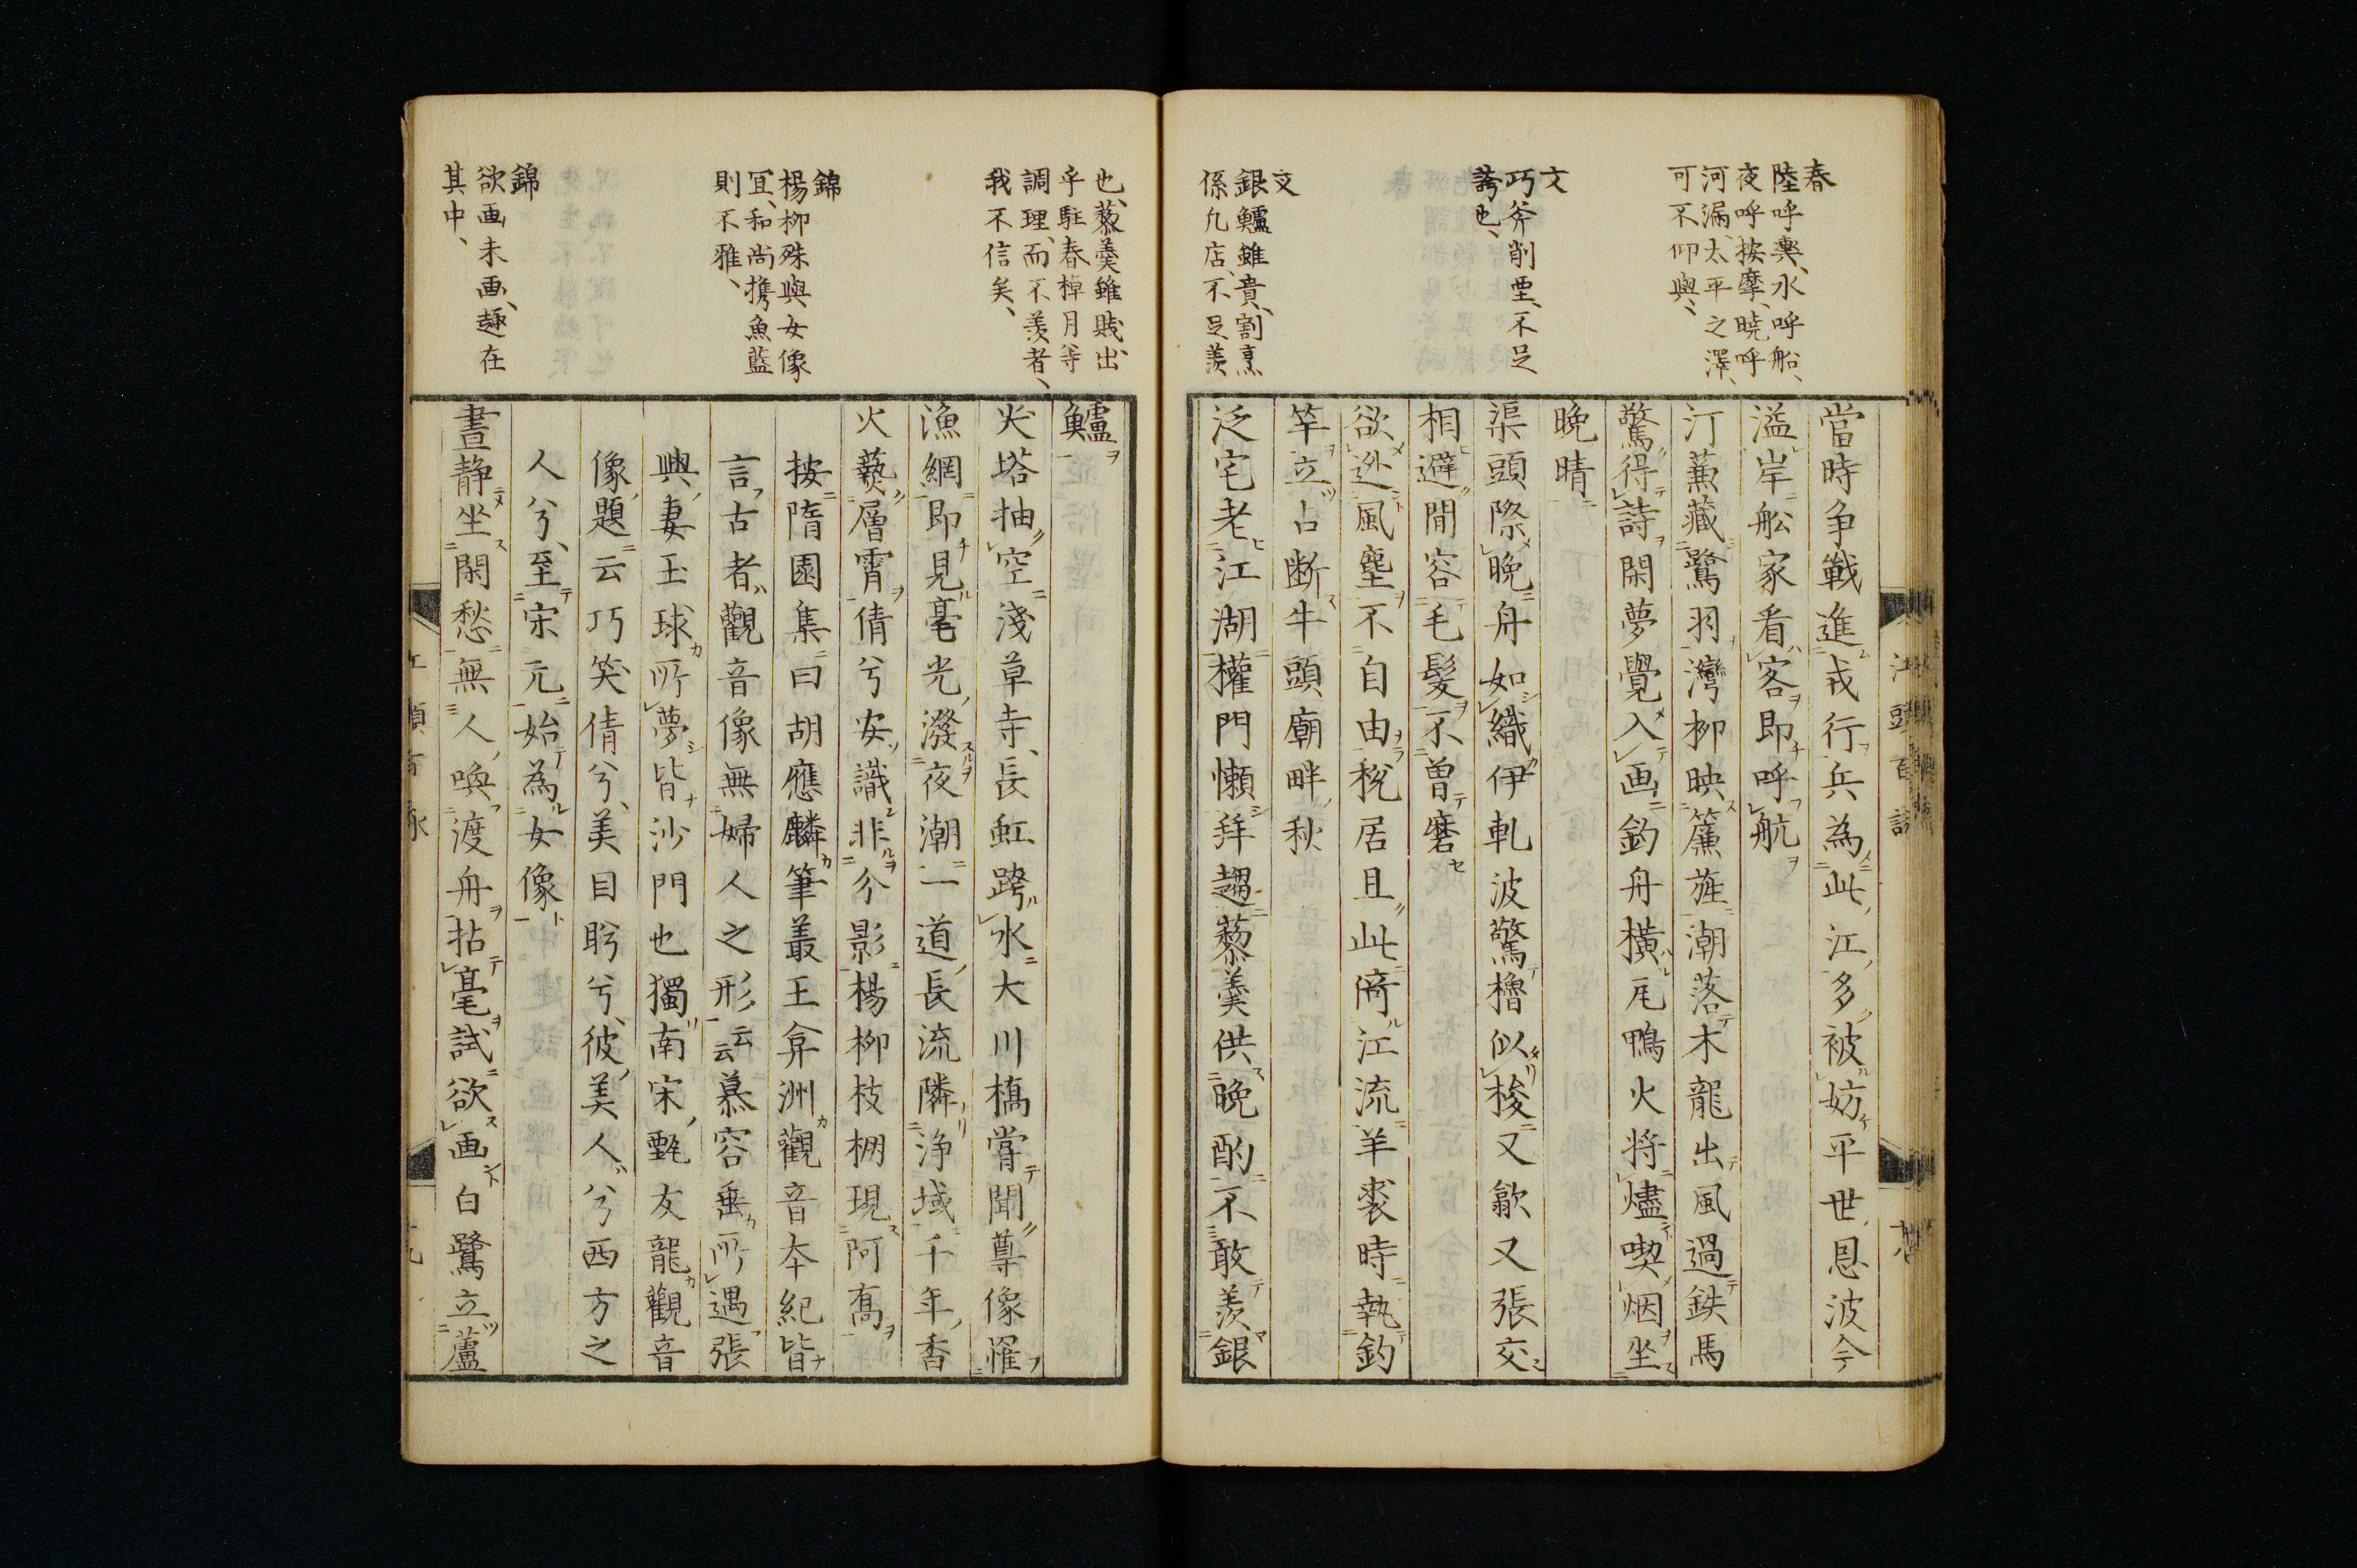 春
陸呼輿、水呼船、
夜呼按摩、暁呼
河漏、太平之澤、
可不仰與、
文
巧斧削堊、不足
誇也、
文
銀鱸雖貴、割烹
係凡店、不足羨
當時争戰進戎行兵為此江多被妨平世恩波今
溢岸舩家看客即呼航
汀蕉藏鷺羽灣柳映簾旌潮落木龍出風過鉄馬
驚得詩閑夢覺入画釣舟橫尾鴨火将燼喫烟坐
晩晴
渠頭際晩舟如織伊軋波驚櫓似梭又歙又張交
相避間容毛髮不曽磨
欲迯風塵不自由税居且此倚江流羊裘時執釣
竿立占断牛頭廟畔秋
泛宅老江湖權門懶拜趨藜羹供晩酌不敢羨銀
江頭百詠
也、藜羹雖賎、出
乎駐春棹月等
調理、而不羨者、
我不信矣、
錦
楊柳殊與女像
冝、和尚携魚藍
則不雅、
錦
欲画未画、趣在
其中、
鱸
尖塔抽空淺草寺、長虹跨水大川橋嘗聞尊像罹
漁網即見毫光潑夜潮一道長流隣浄域千年香
火藝層霄倩兮安識非分影楊柳枝棚現阿嵩
按隋園集曰胡應麟筆叢王弇洲觀音本紀皆
言古者觀音像無婦人之形云云慕容垂所遇張
興妻王球所夢皆沙門也獨南宋甄友龍觀音
像題云巧笑倩兮、美目盼兮、彼美人兮西方之
人兮、至宋元始為女像
晝静坐閑愁無人喚渡舟拈毫試欲画白鷺立蘆